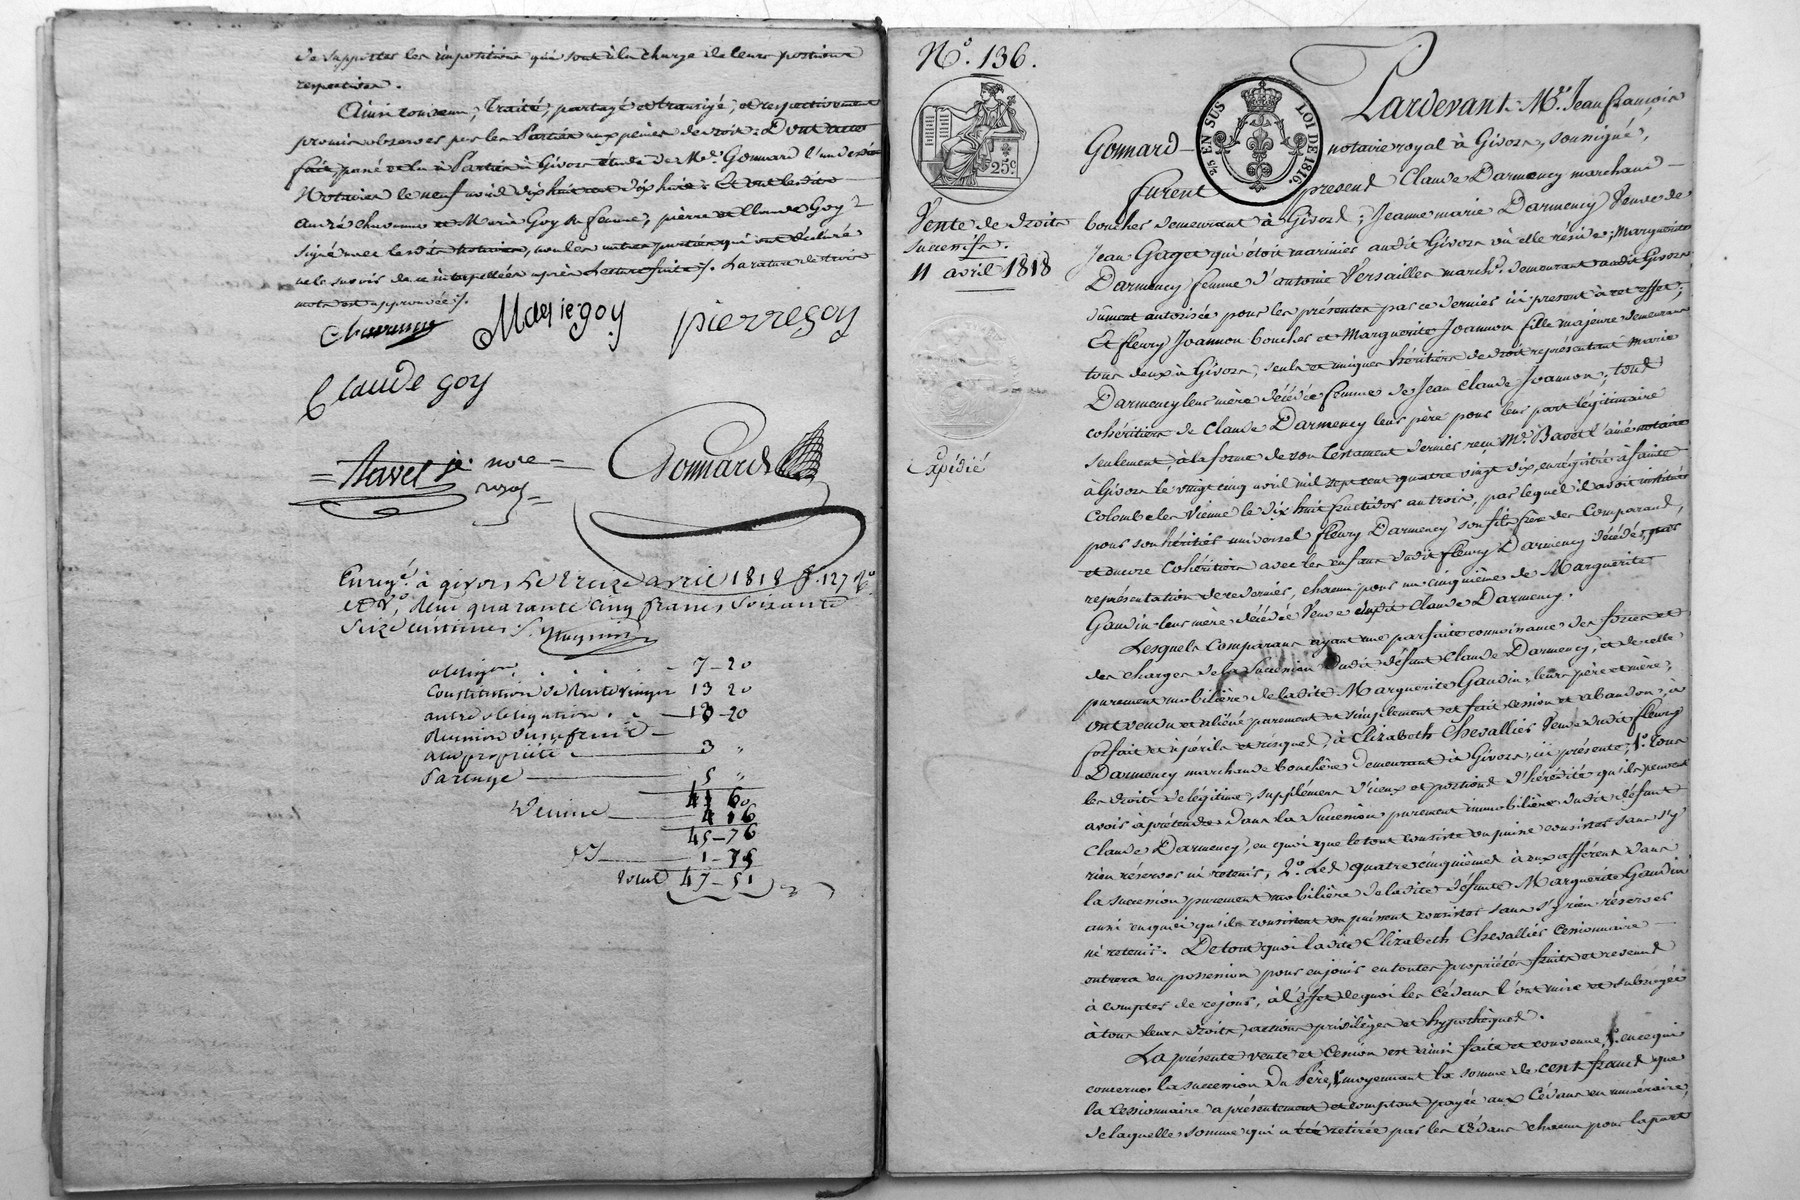 de supporter les impositions qui sont à la charge de leurs portions
respectives.
Ainsi convenu, traité, partagé et transigé, et respectivement
promis observer par les Parties aux peines de droit : Dont acte
fait, passé et lu à Parties à Givors étude de Me. Gonnard l'un desdits
Notaires le neuf avril dix huit cent dix huit. Et ont lesdits
André Charvin et Marie Goy sa femme, pierre et Claude Goy
signé avec lesdits Notaires, non les autres parties qui ont déclaré
ne le savoir de ce interpellées après lecture faite ./. La rature de trois
mots est approuvée ./.
Marie goy
pierre goy
Claude goy
Navet je. nore
royal
Gonnard
Enregé. à givors le treize avril 1818 fo. 127 Ro.
et Vo. Reçu quarante cinq francs soixante
seize centimes
obligon. 7-20
Constitution de rente viagere 13 20
autre obligation. 13-20
Réunion d'usufruit
à la propriété 3 "
Partage 5 "
41 60
Decime 4 16
45-76
1-75
Total 47-51
No. 136.
25 EN SUS
LOI DE 1816.
25c
Vente de droits
successifs.
11 avril 1818
Expédié
Pardevant Me. Jean françois
Gonnard notaire royal à Givors, soussigné,
furent present Claude Darmency marchand
boucher demeurant à Givors ; Jeanne marie Darmency Veuve de
Jean Gaget qui étoit marinier audit Givors où elle réside ; Marguerite
Darmency femme d'antoine Versailles marchd. demeurant audit Givors
dument autorisée pour les présentes par ce dernier ici present à cet effet ;
Et fleury Joannon boucher et Marguerite Joannon fille majeure demeurans
tous deux à Givors, seuls et uniques héritiers de droit représentant Marie
Darmency leur mère décédée femme de Jean Claude Joannon ; tous
cohéritiers de Claude Darmency leur père pour leur part légitimaire
seulement, à la forme de son testament dernier reçu Me. Badet l'ainé notaire
à Givors le vingt cinq avril mil sept cent quatre vingt six, enregistré à Sainte
Colombe les Vienne le dix huit fructidor an trois, par lequel il avoit institué
pour son héritier universel fleury Darmency son fils frère des Comparans,
et encore cohéritiers avec les enfans dudit fleury Darmency décédé, par
représentation de ce dernier, chacun pour un cinquième de Marguerite
Gaudin leur mère décédée Veuve dudit Claude Darmency.
Lesquels Comparans ayant une parfaite connoissance des forces et
des charges de la succession dudit défunt Claude Darmency, et de celle
purement mobilière de ladite Marguerite Gaudin, leurs père et mère ;
ont vendu et aliéné purement et simplement et fait cession et abandon, à
forfait et à périls et risques, à Elizabeth Chevallier Veuve dudit fleury
Darmency marchande bouchère demeurant à Givors, ici présente, 1o. tous
les droits de légitime, supplément d'iceux et portions d'hérédité qu'ils peuvent
avoir à prétendre dans la Succession purement immobilière dudit défunt
Claude Darmency, en quoi que le tout consiste ou puisse consister sans s'y
rien réserver ni retenir, 2o. Les quatre cinquièmes à eux afférent dans
la succession purement mobilière de ladite défunte Marguerite Gaudin
aussi en quoi qu'ils consistent ou puissent consister sans s'y rien réserver
ni retenir. De tout quoi ladite Elizabeth Chevallier Cessionnaire
entrera en possession pour en jouir en toutes propriétés fruits et revenus
à compter de ce jour, à l'effet de quoi les Cédans l'ont mise et subrogée
à tous leurs droits, actions, privilèges et hypothèques.
La présente vente et Cession est ainsi faite et convenue, 1o. en ce qui
concerne la succession du Père, moyennant la somme de cent francs que
la Cessionnaire a présentement et comptant payée aux Cédans en numéraire,
de laquelle somme qui a été retirée par les Cédans chacun pour la part